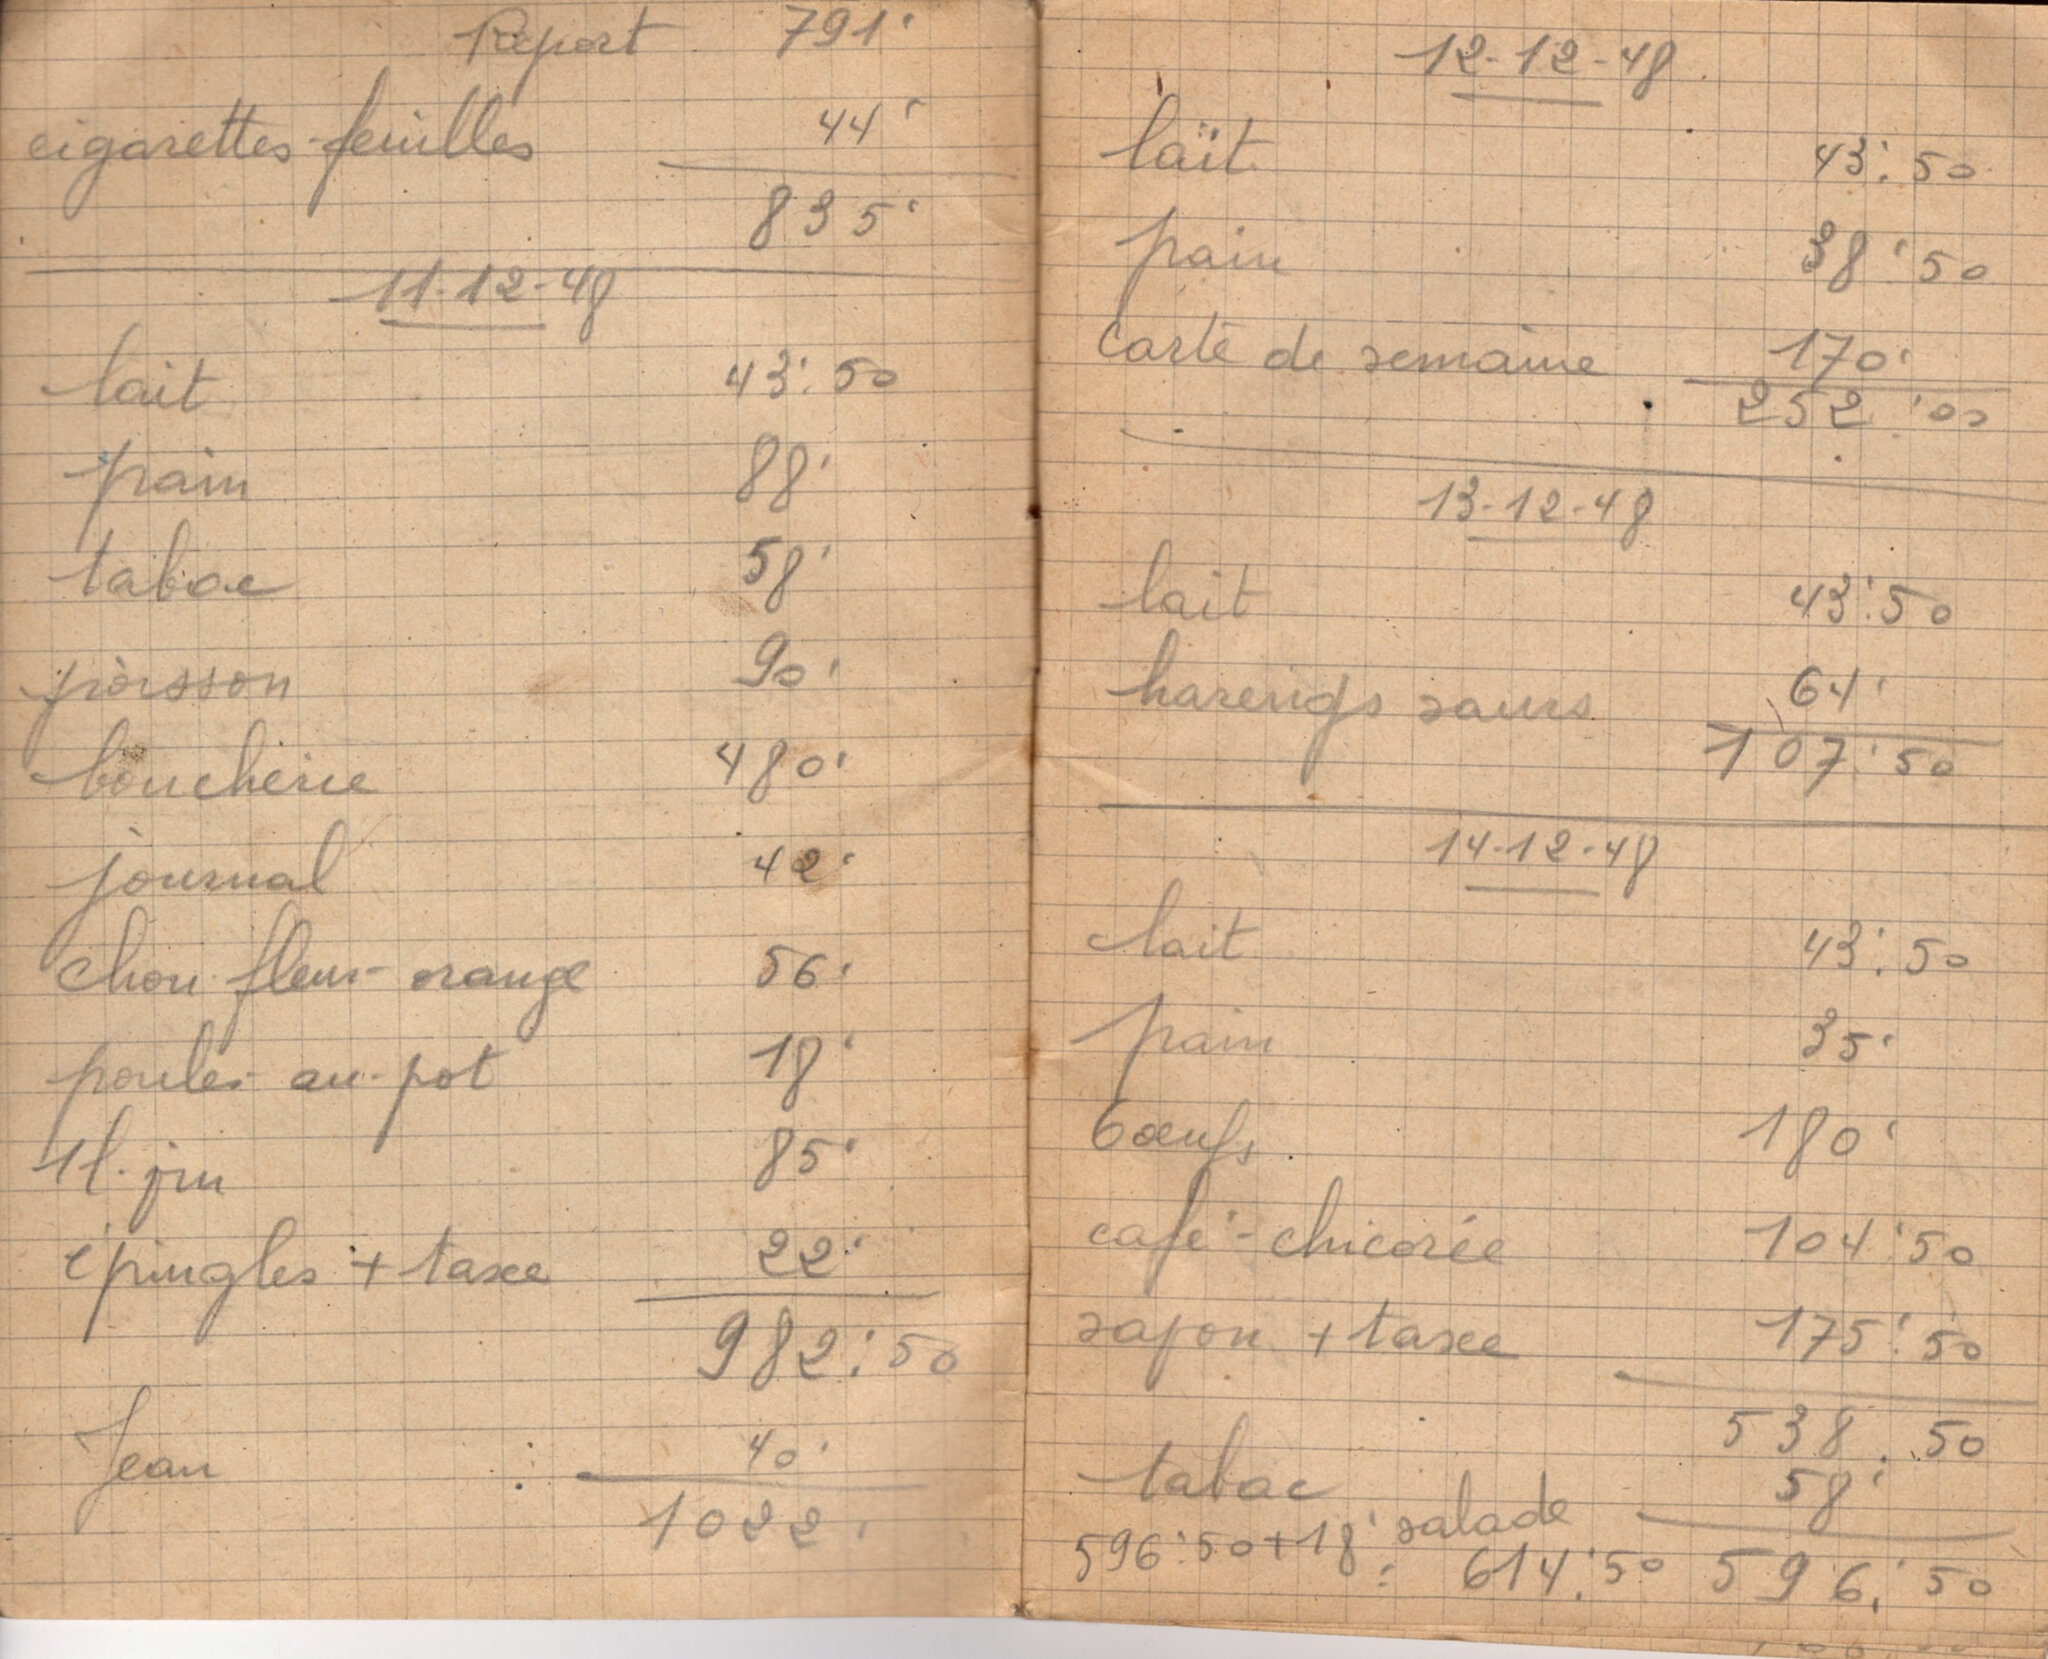 Report 791'
cigarettes-feuilles 44'
835'
11-12-48
lait 43'.50
pain 88'
tabac 58'
poisson 90'
boucherie 480'
journal 42'
chou-fleur-orange 56'
poules-au-pot 18'
1l. jin 85'
épingles + taxe 22'
982'.50
Jean 40'
1022'
12-12-48
lait 43'.50
pain 38'50
carte de semaine 170'
252'00
13-12-48
lait 43'.50
harengs saurs 64'
107'.50
14-12-48
lait 43'.50
pain 35'
6 œufs 180'
café-chicorée 104'50
savon + taxe 175'.50
538.50
tabac 58'
596'.50+18' salade
= 614'.50 596'.50